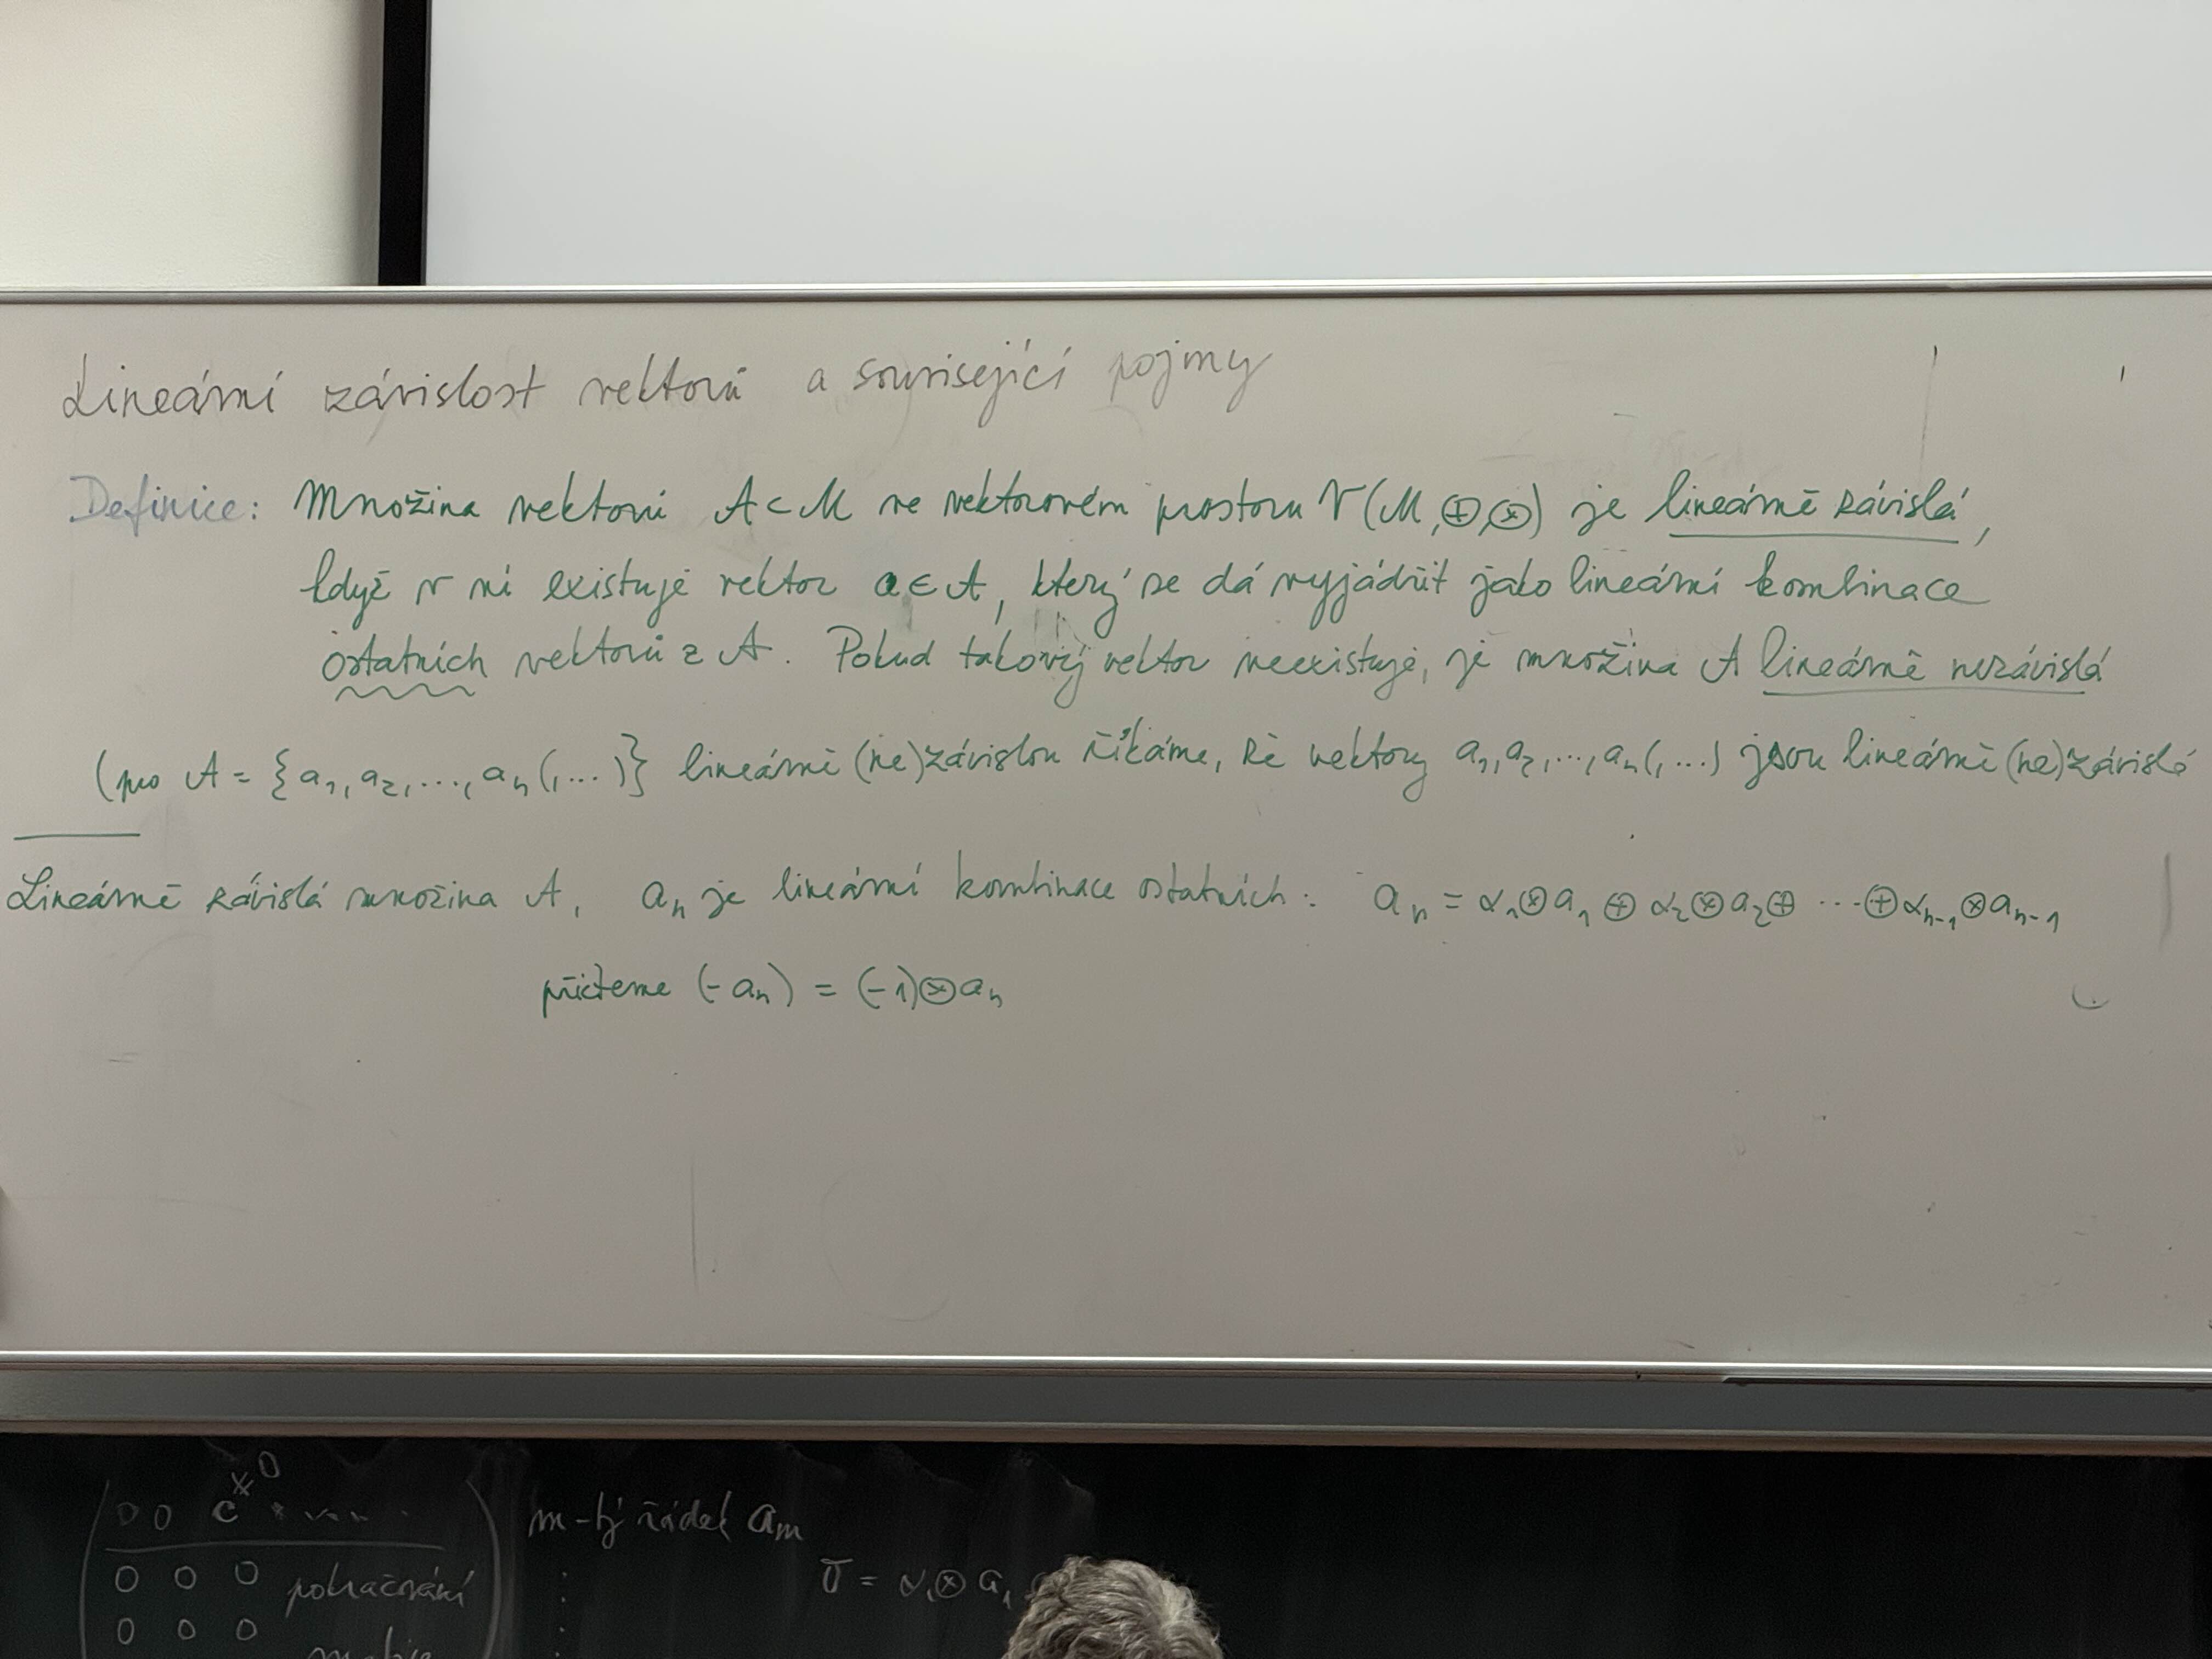 Lineární závislost vektorů a související pojmy
Definice: Množina vektorů A ⊂ M ve vektorovém prostoru V(M,⊕,⊗) je lineárně závislá,
když v ní existuje vektor a ∈ A, který se dá vyjádřit jako lineární kombinace
ostatních vektorů z A. Pokud takový vektor neexistuje, je množina A lineárně nezávislá
(pro A = {a₁, a₂, ..., aₙ(,...)} lineárně (ne)závislou říkáme, že vektory a₁, a₂, ..., aₙ(,...) jsou lineárně (ne)závislé
Lineárně závislá množina A, aₙ je lineární kombinace ostatních: aₙ = α₁⊗a₁ ⊕ α₂⊗a₂ ⊕ ··· ⊕ αₙ₋₁⊗aₙ₋₁
přičteme (-aₙ) = (-1)⊗aₙ
0 0 c
m-tý řádek aₘ
0 0 0 pokračování
0 0 0
= α₁⊗a₁